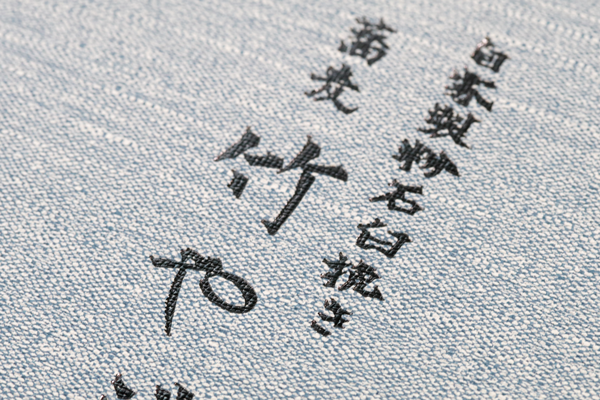 自家製粉石臼挽き
蕎麦 竹や